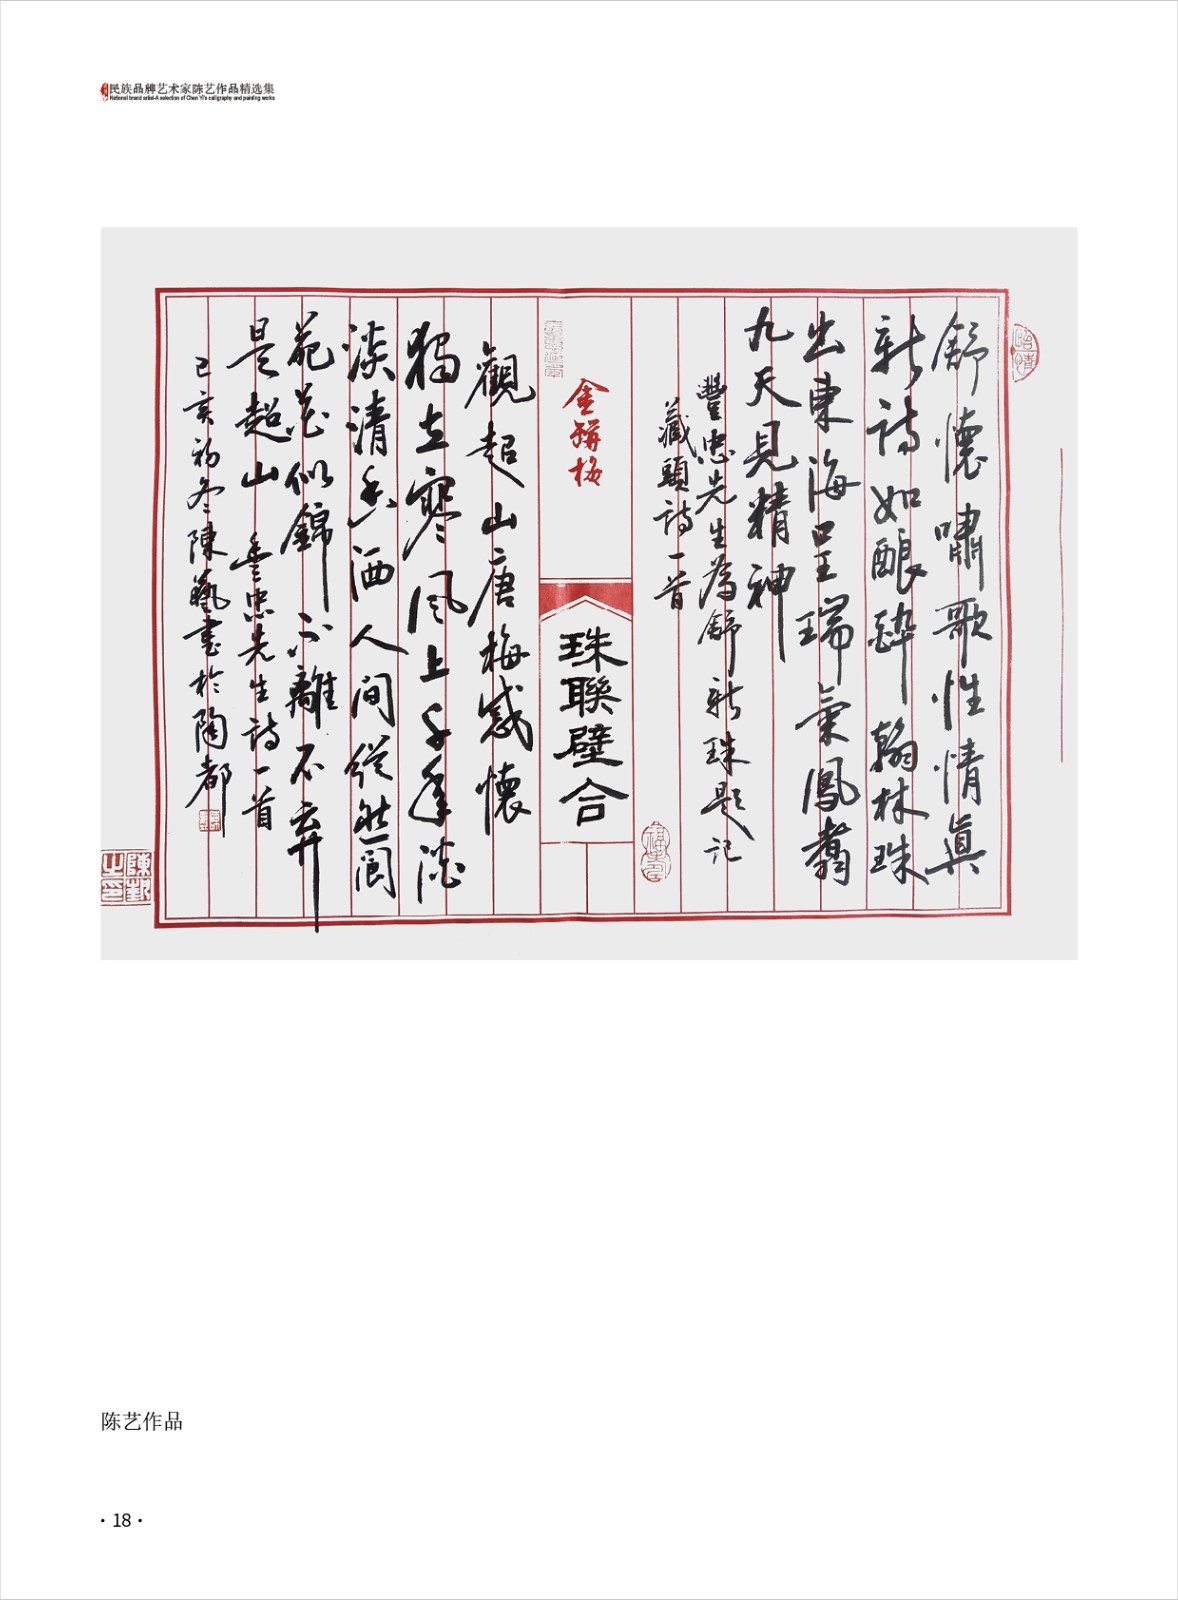 民族品牌艺术家陈艺作品精选集
National brand artist-A selection of Chen Yi's calligraphy and painting works
舒懷嘯歌性情真
新詩如酿醉翰林珠
出東海呈瑞氣鳳翥
九天見精神
豐忠先生為舒新珠題记
藏頭詩一首
金骈梅
珠聯璧合
觀超山唐梅感懷
獨立寒風上千年淡
淡清香洒人间縱然閬
苑花似錦不離不弃
是超山 豐忠先生詩一首
己亥初冬陳藝書於陶都
陈艺作品
·18·